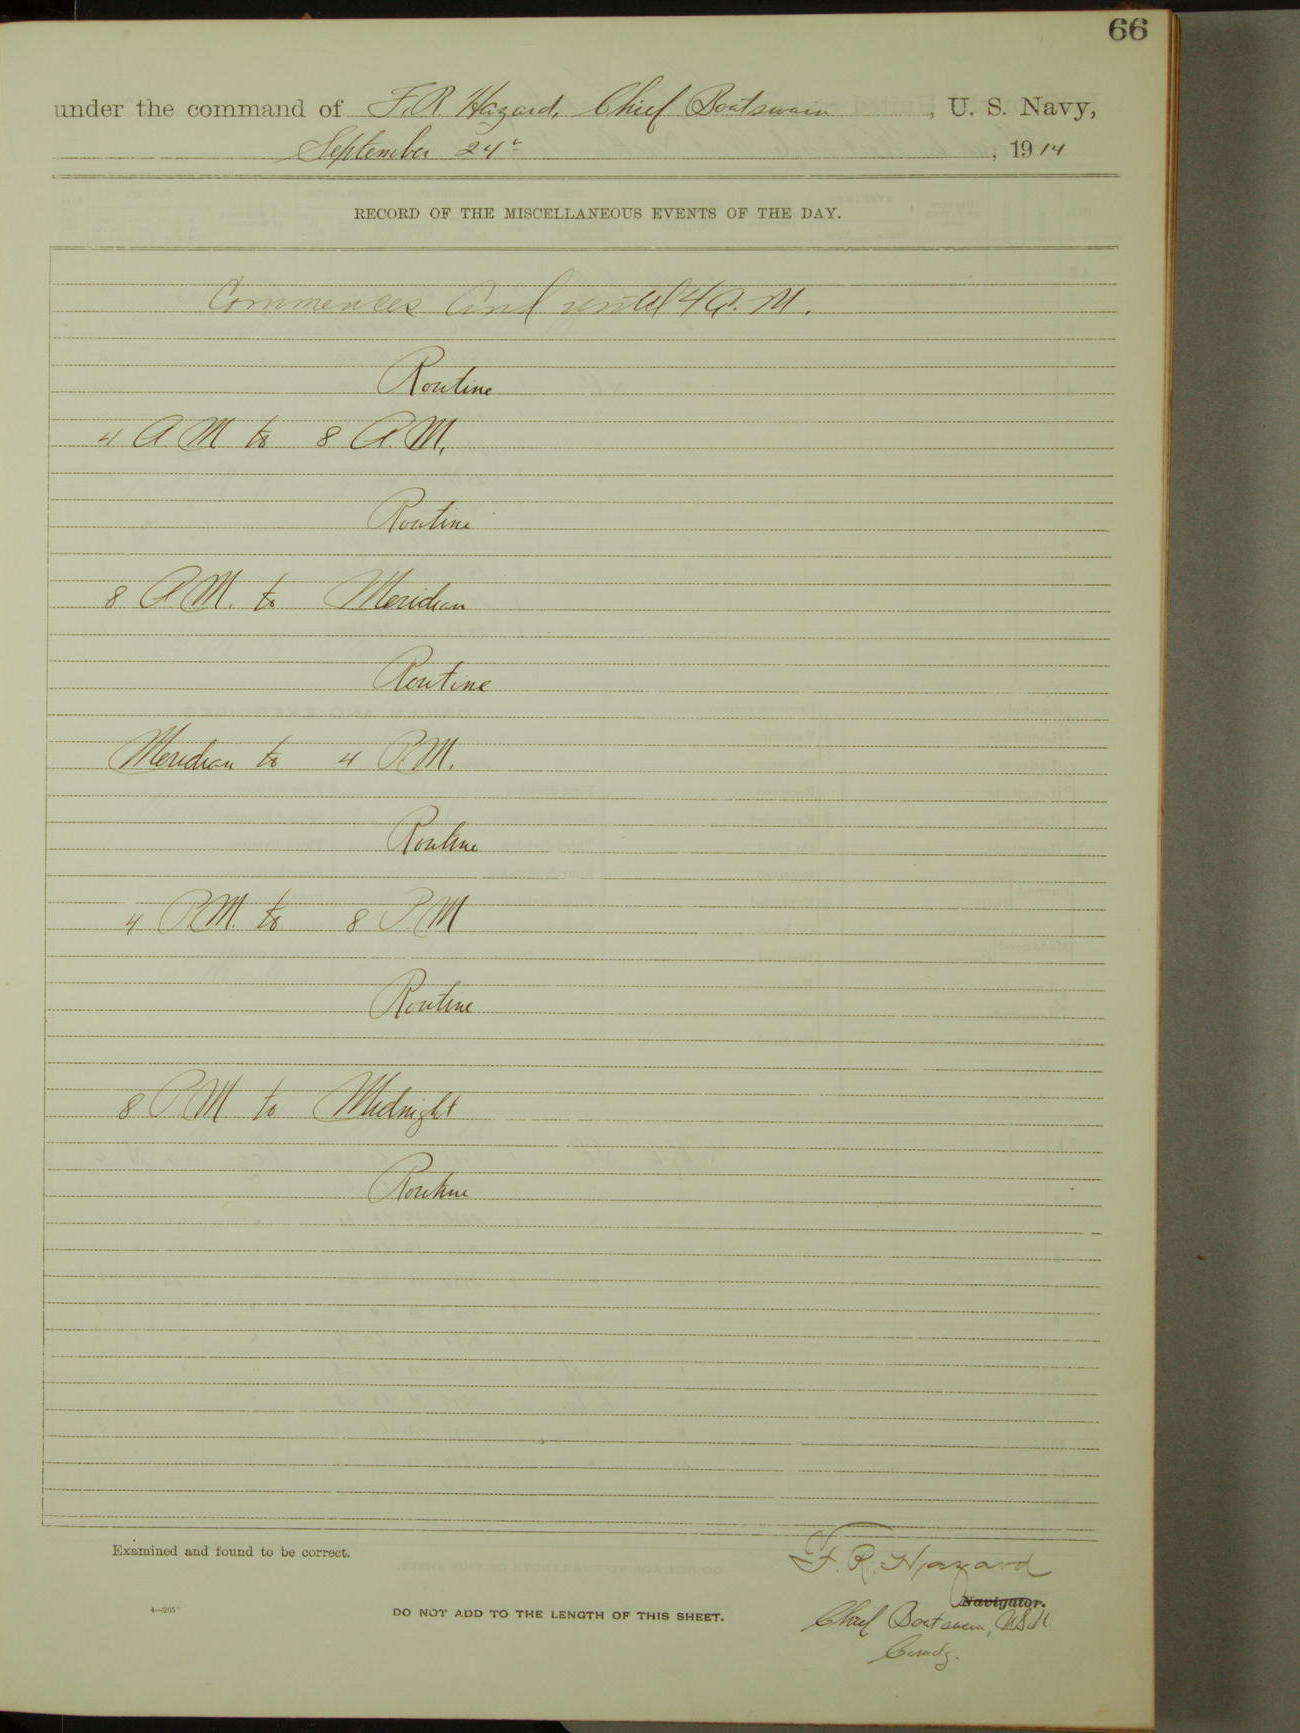 66
under the command of F. R. Hazard, Chief Boatswain, U. S. Navy,
September 24", 1914
RECORD OF THE MISCELLANEOUS EVENTS OF THE DAY.
Commences and until 4 A. M.
Routine
4 A M to 8 A. M.
Routine
8 A. M. to Meridian
Routine
Meridian to 4 P. M.
Routine
4 P. M. to 8 P. M
Routine
8 P M to Midnight
Routine
Examined and found to be correct.
F. R. Hazard
Navigator.
4—265
DO NOT ADD TO THE LENGTH OF THIS SHEET.
Chief Boatswain, USN
Comdg.